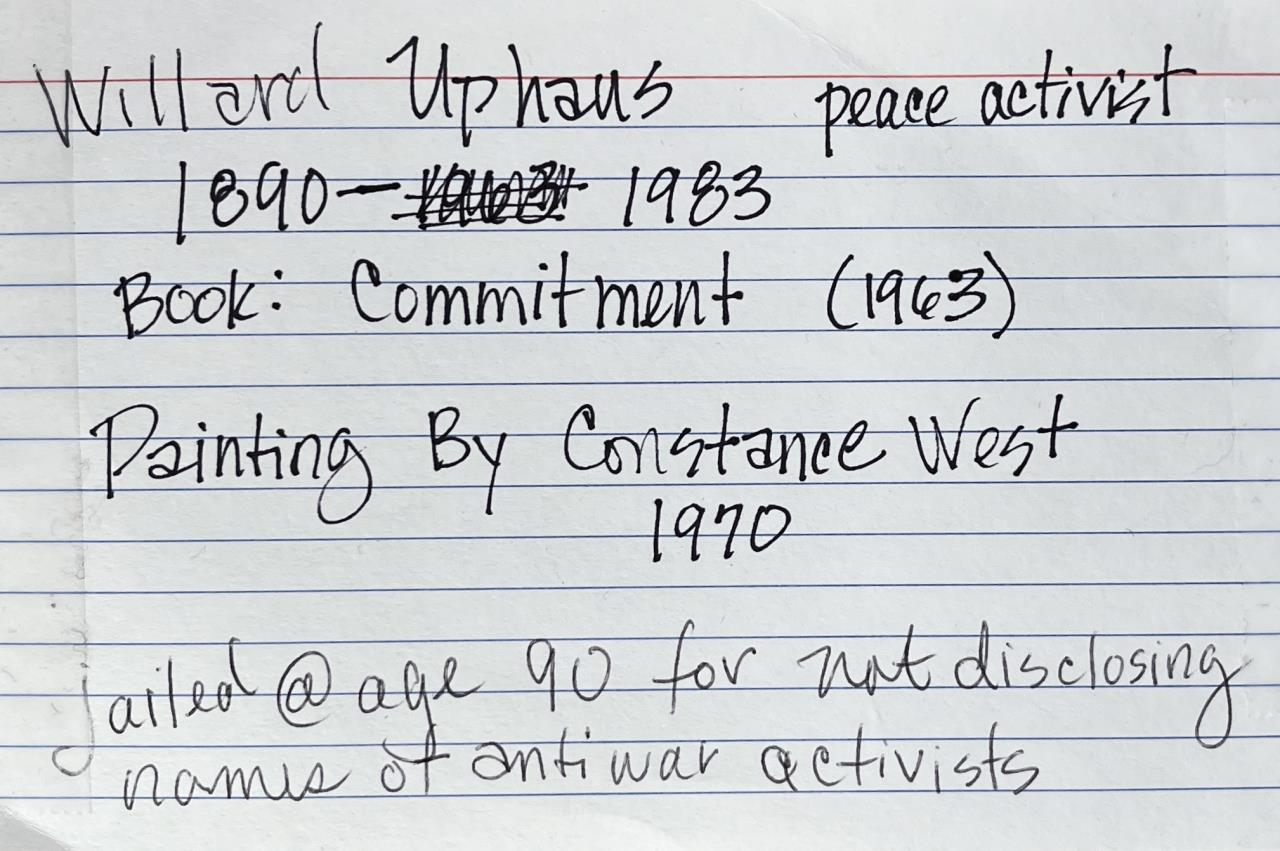 Willard Uphaus peace activist
1890— 1983
Book: Commitment (1963)
Painting By Constance West
1970
jailed @ age 90 for not disclosing
names of antiwar activists